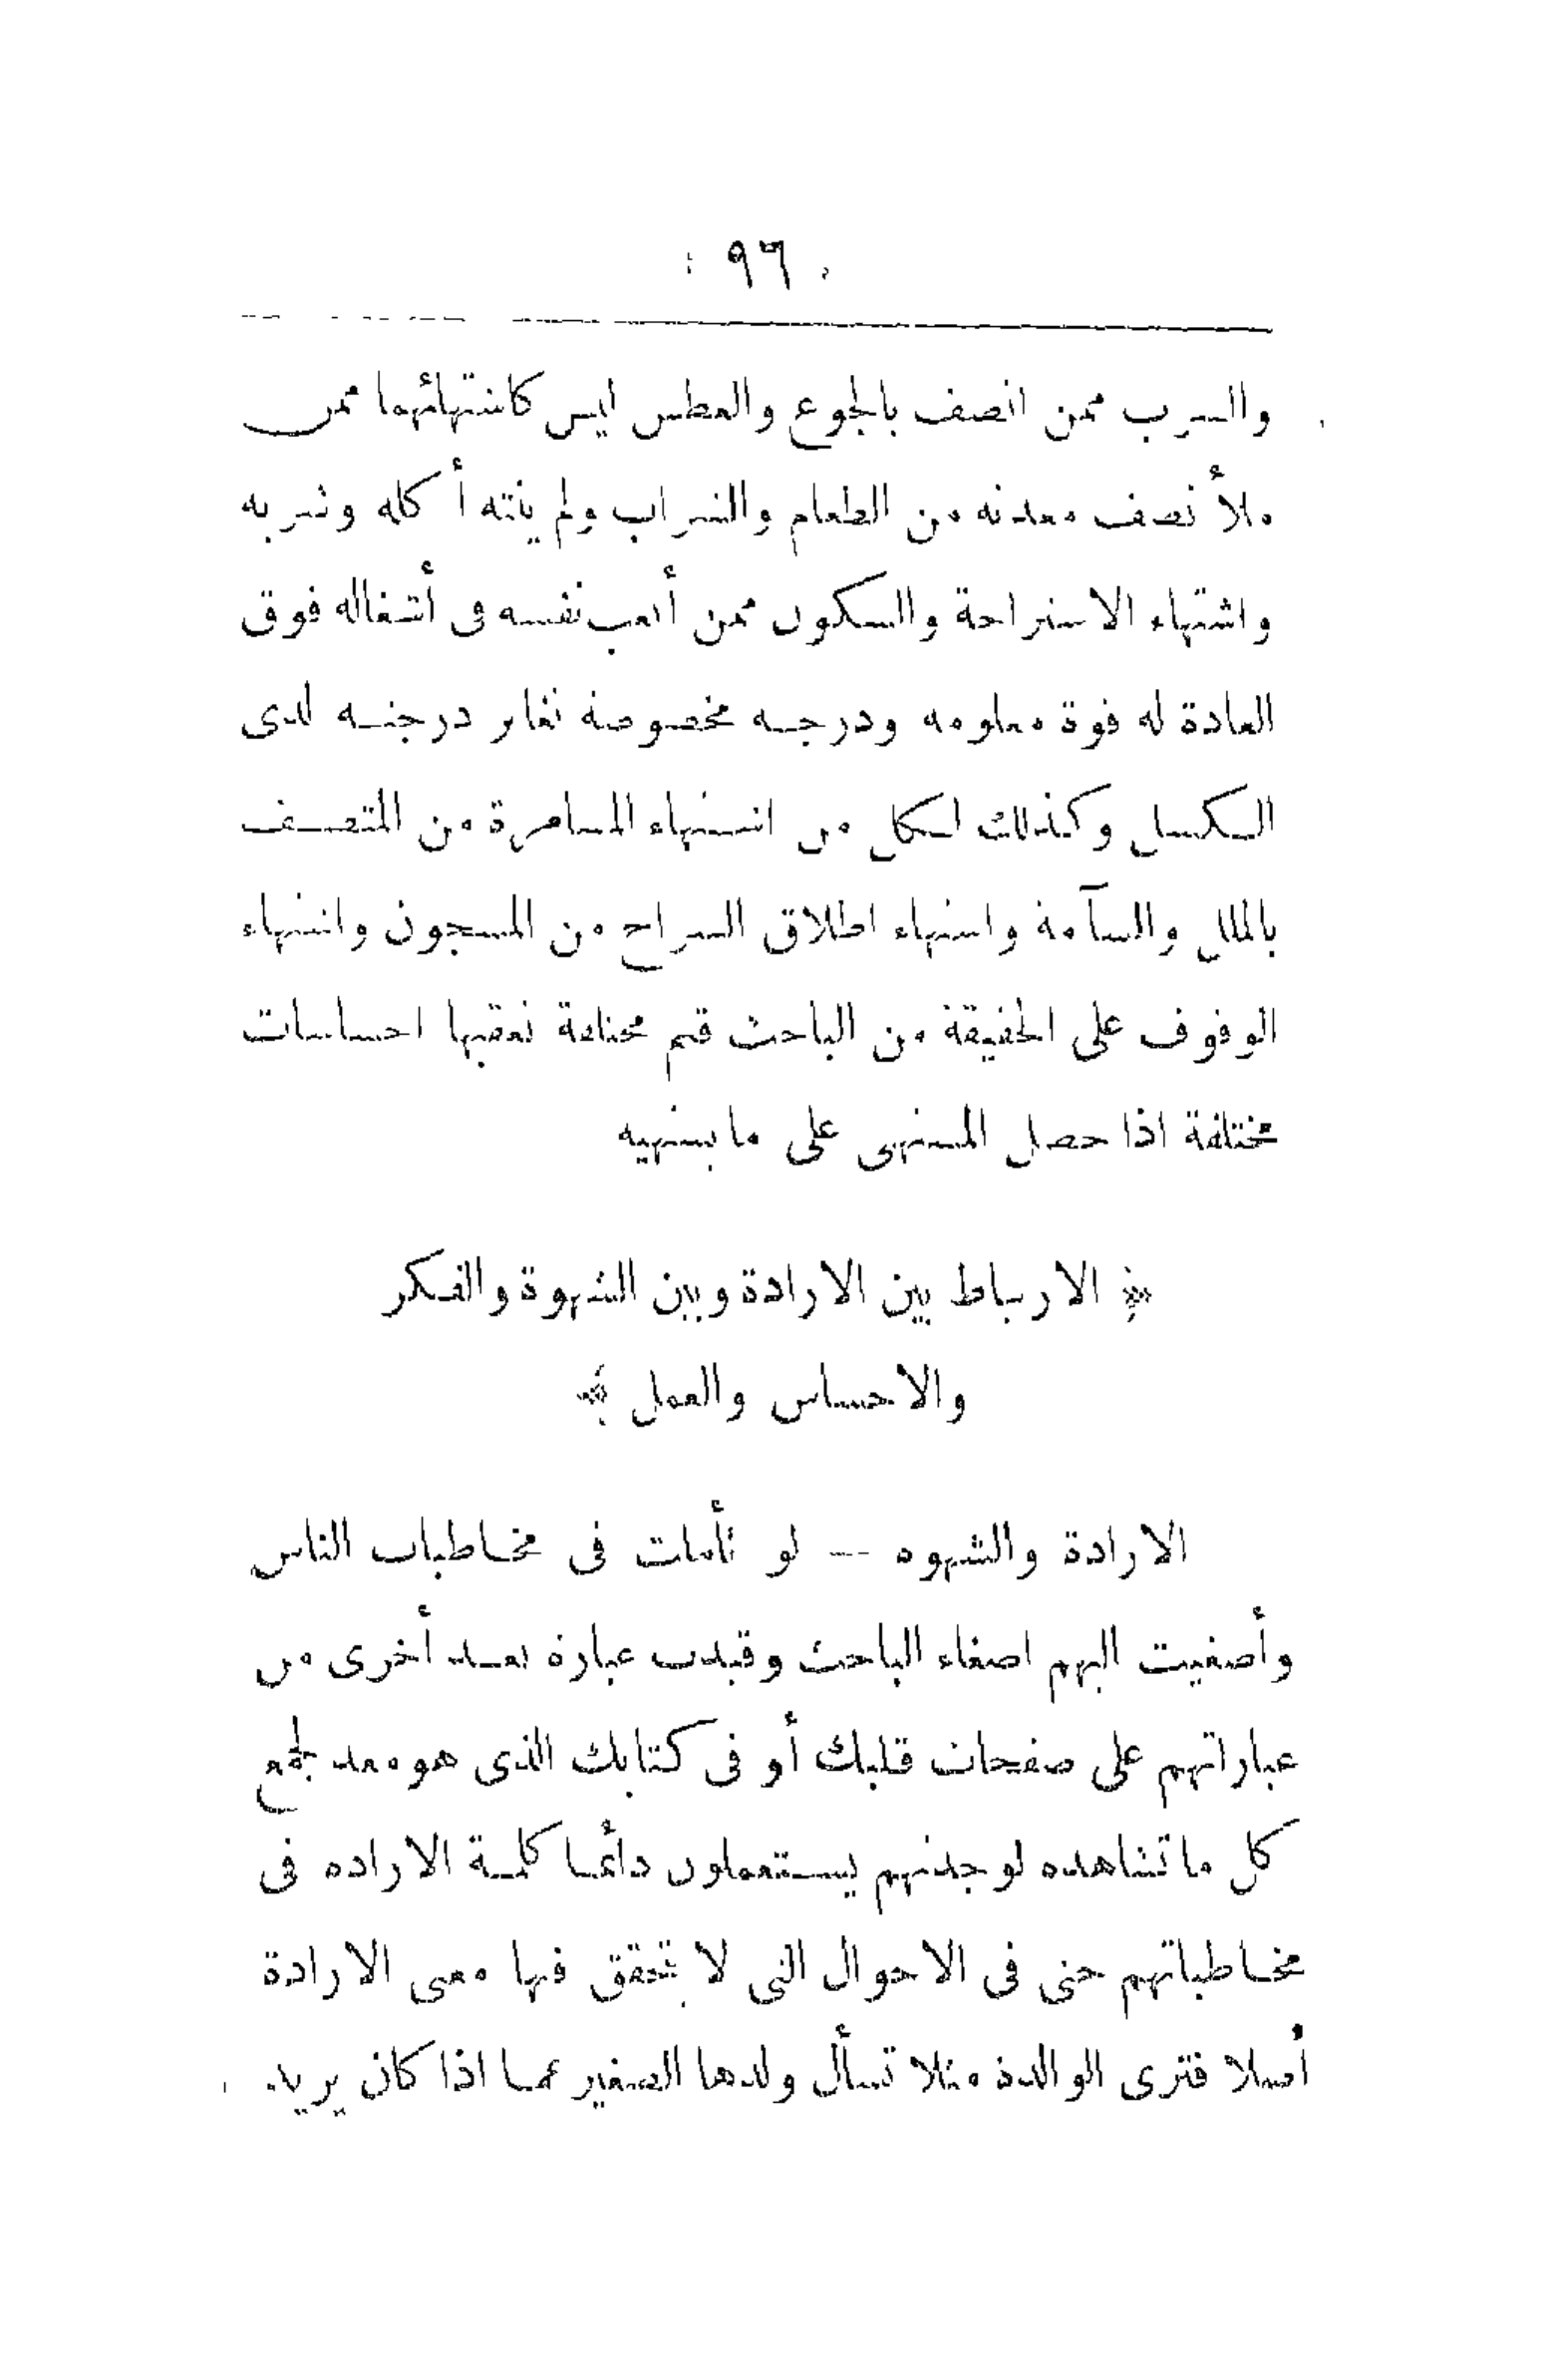 ٩٦
والشرب ممن اتصف بالجوع والعطش ليس كاشتهائهما ممن
ملأ نصف معدته من الطعام والشراب ولم ينته أكله وشربه
واشتهاء الاستراحة والسكون ممن أتعب نفسه فى أشغاله فوق
العادة له قوة معلومه ودرجه مخصوصة تغاير درجته لدى
الكسل وكذلك لكل من اشتهاء المسامرة من المتصف
بالملل والسآمة واشتهاء اطلاق السراح من المسجون واشتهاء
الوقوف على الحقيقة من الباحث قيم مختلفة تعقبها احساسات
مختلفة اذا حصل المشتهى على ما يشتهيه
﴿ الارتباط بين الارادة وبين الشهوة والفكر
والاحساس والعمل ﴾
الارادة والشهوه — لو تأملت فى مخاطبات الناس
وأصغيت اليهم اصغاء الباحث وقيدت عبارة بعد أخرى من
عباراتهم على صفحات قلبك أو فى كتابك الذى هو معد لجمع
كل ما تشاهده لوجدتهم يستعملون دائما كلمة الاراده فى
مخاطباتهم حتى فى الاحوال التى لا يتحقق فيها معنى الارادة
أصلا فترى الوالدة مثلا تسأل ولدها الصغير عما اذا كان يريد